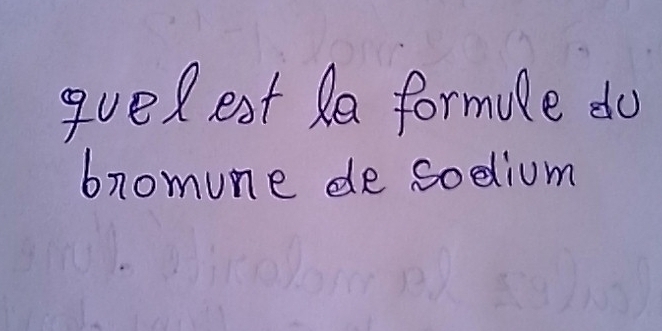 quel est la formule du
bromure de sodium